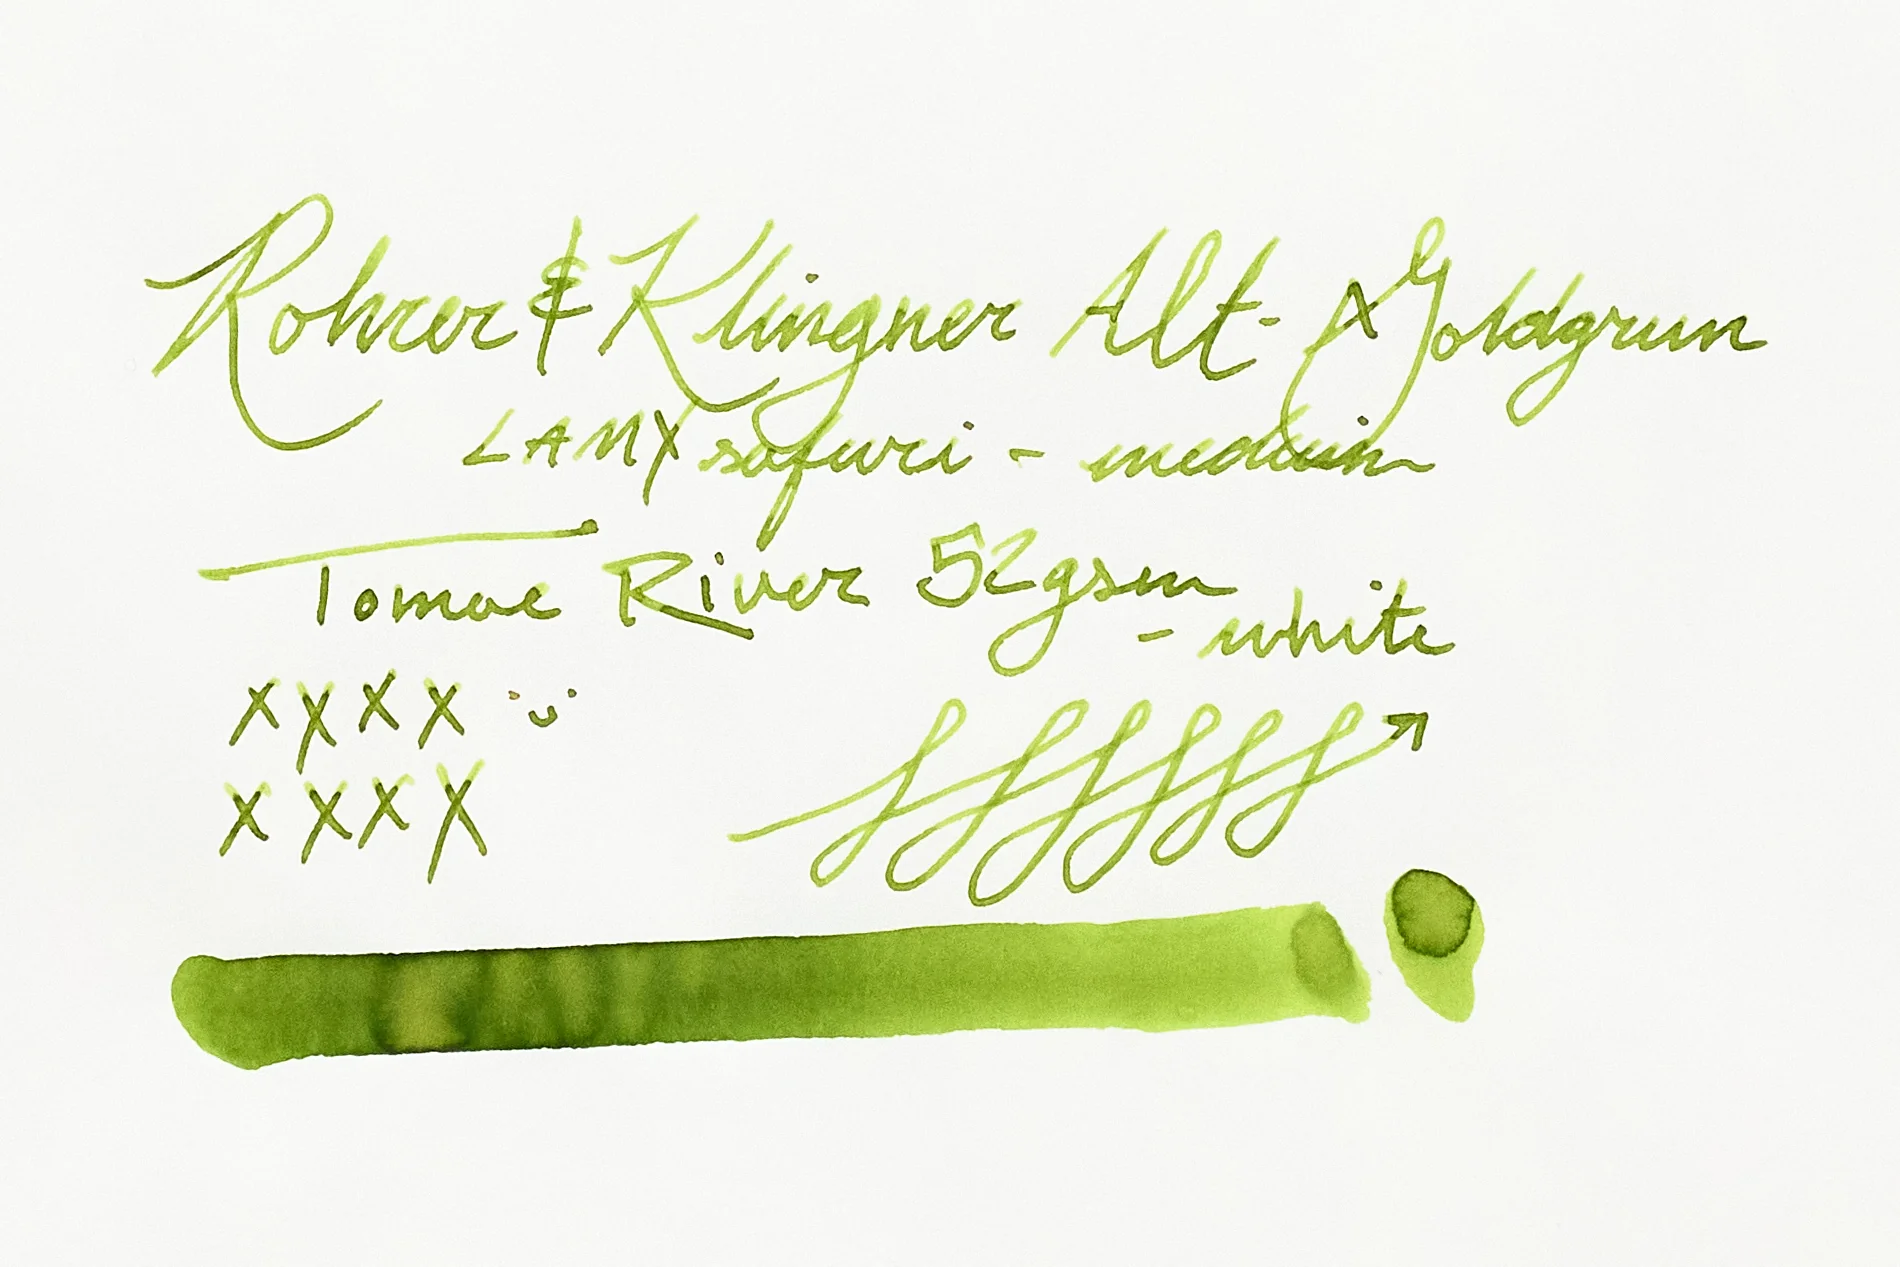 Rohrer & Klingner Alt-Goldgrun
LAMY safari - medium
Tomoe River 52gsm
- white
x x x x
x x x x